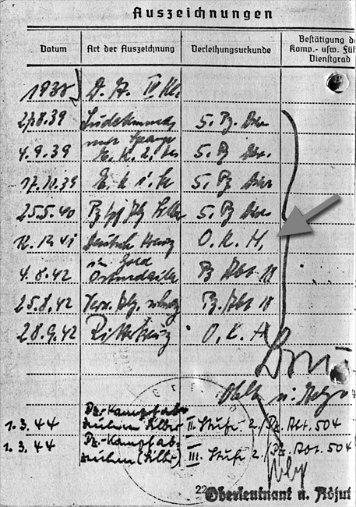 Auszeichnungen
Datum Art der Auszeichnung Verleihungsurkunde Bestätigung d
Komp.- usw. Fü
Dienstgrad
1938 D. A. IV Kl.
27.8.39 5. Pz Div
4.9.39 E. K. 2. Kl. 5. Pz Div.
17.10.39 E. K. 1. Kl. 5. Pz Div
25.5.40 Pz Silber 5. Pz Div
12.12.41 Deutsch Kreuz O. K. H.
in Gold
4.8.42 Ostmedaille Pz Abt. 18
25.8.42 Verw. Abz. Pz. Abt 18
28.9.42 Ritterkreuz O. K. H
1.3.44 Pz-Kampfab-
zeichen (Silber) II. Stufe 2./Pz. Abt. 504
1.3.44 Pz.-Kampfab-
zeichen (Silber) III. Stufe 2./Pz. Abt. 504
Oberleutnant u. Adjut